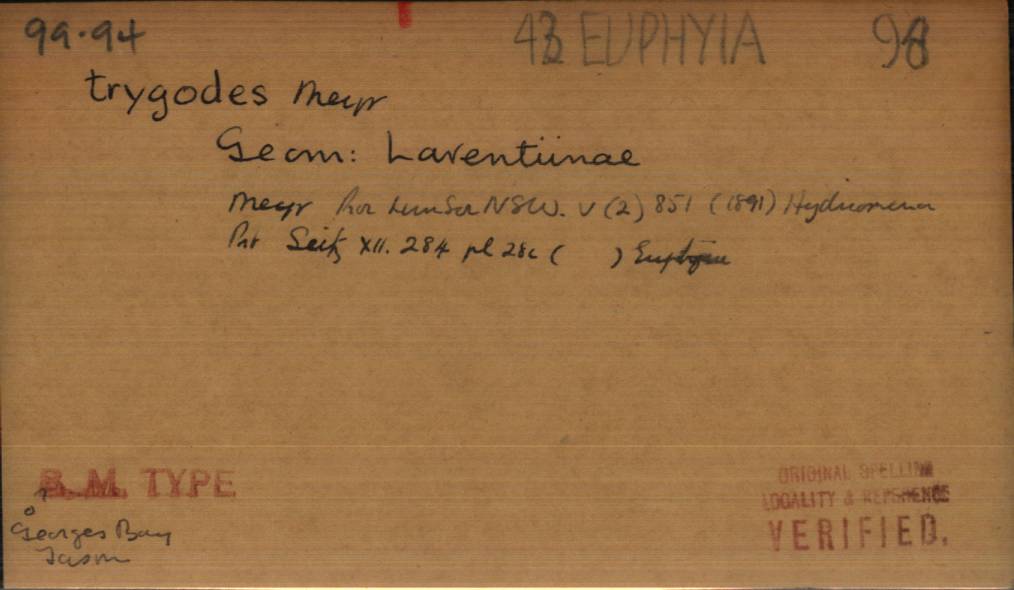 99.94
43 EUPHYIA 98
trygodes Meyr
Geom: Larentiinae
Meyr Proc Linn Soc NSW. V (2) 851 (1891) Hydriomena
Prt Seitz XII. 284 pl 28c ( ) Euphyia
B.M. TYPE
♂
Georges Bay
Tasm
ORIGINAL SPELLING
LOCALITY & REFERENCE
VERIFIED.